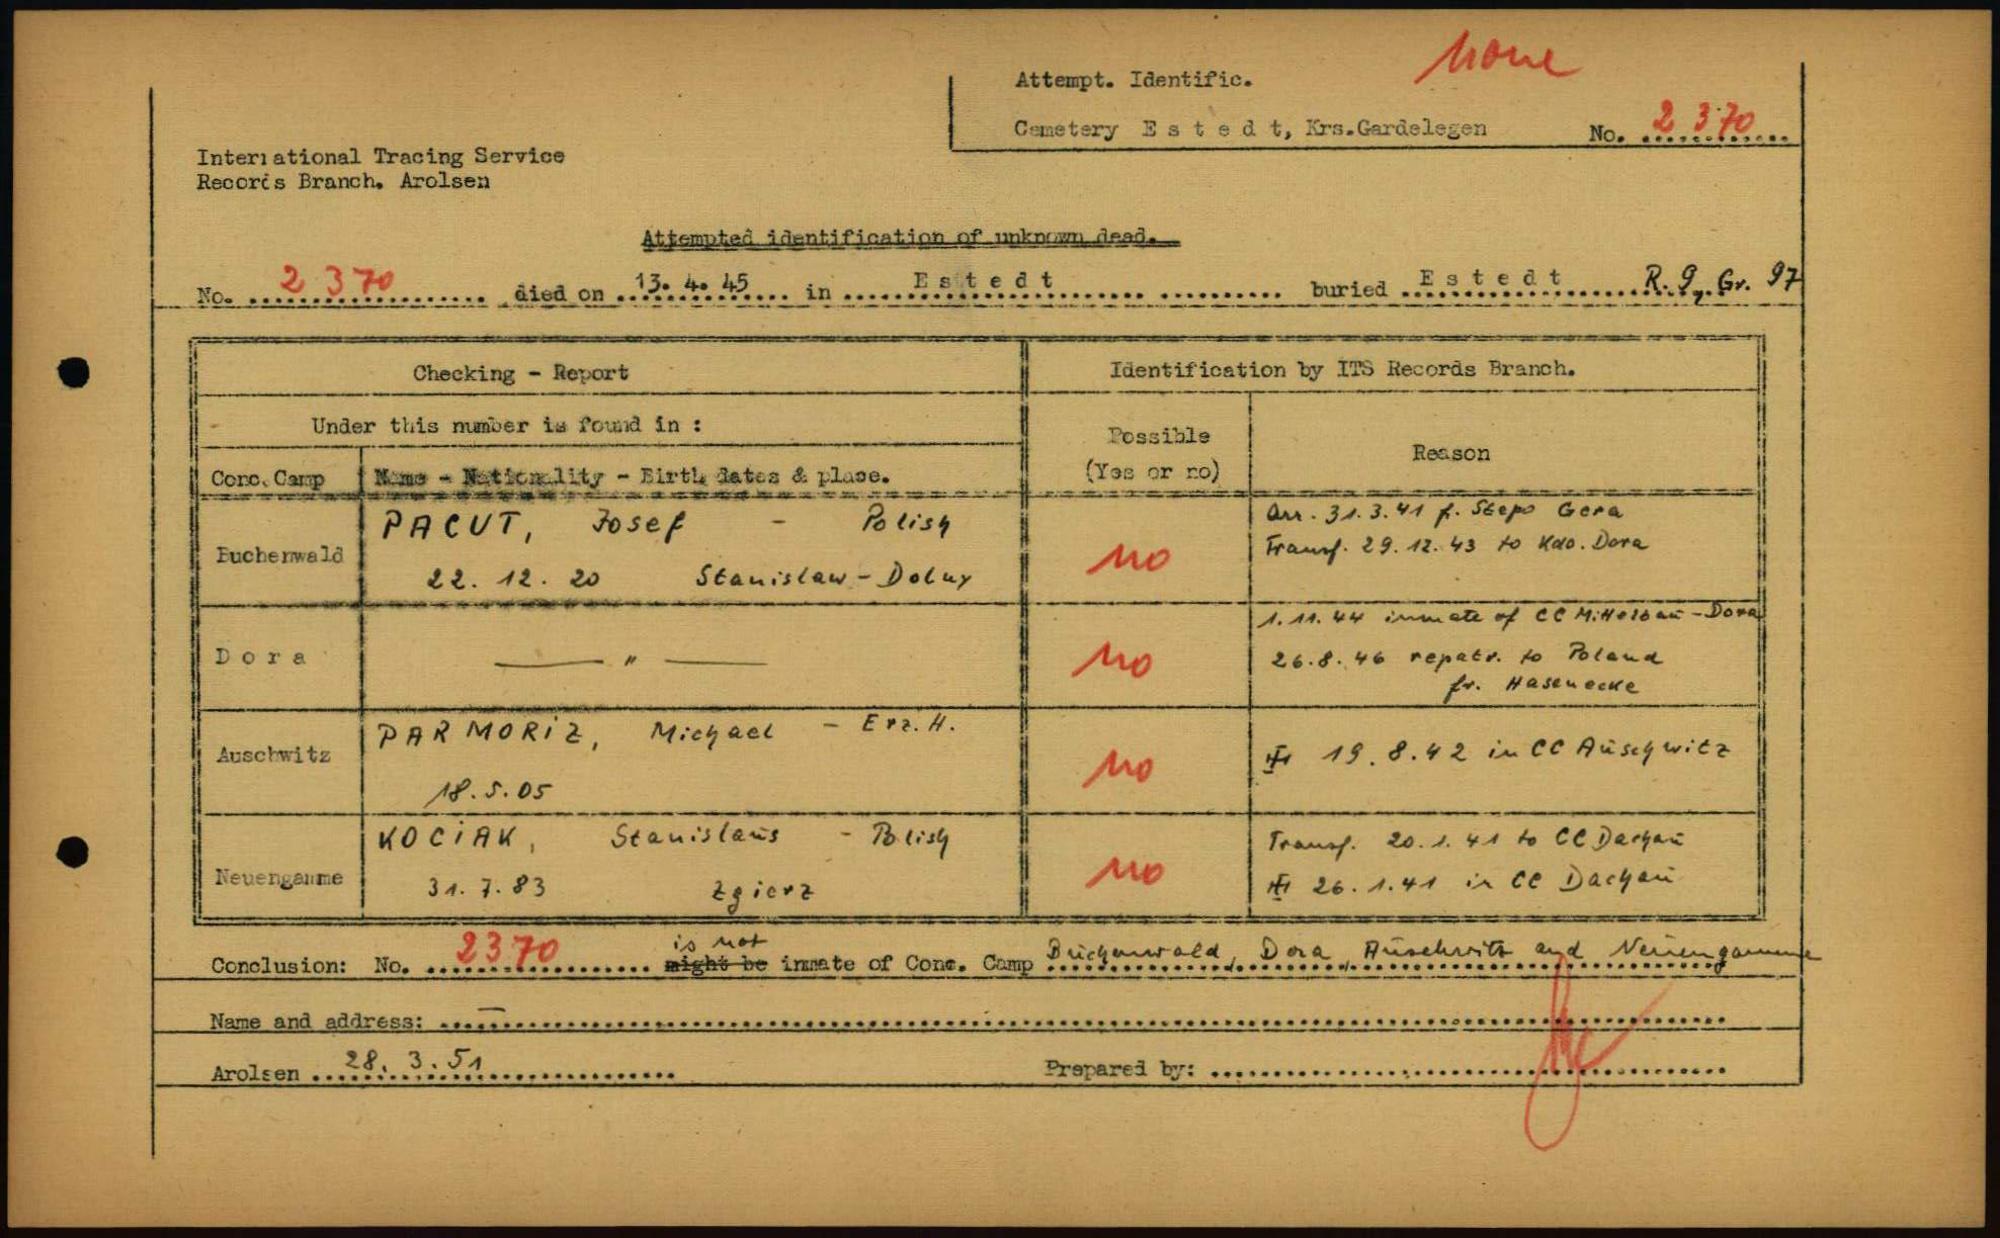 none
Attempt. Identific.
Cemetery E s t e d t, Krs.Gardelegen No. 2370
International Tracing Service
Records Branch. Arolsen
Attempted identification of unknown dead.
No. 2370 died on 13. 4. 45 in E s t e d t buried E s t e d t R. 9, Gr. 97
Checking - Report
Identification by ITS Records Branch.
Under this number is found in :
Possible
(Yes or no)
Reason
Conc. Camp
Name - Nationality - Birth dates & place.
Buchenwald
PACUT, Josef - Polish
22. 12. 20 Stanislaw - Dolny
no
Arr. 31.3.41 f. Stapo Gera
Transf. 29.12.43 to Kdo. Dora
D o r a
— " —
no
1.11.44 inmate of CC Mittelbau - Dora
26.8.46 repatr. to Poland
fr. Hasenecke
Auschwitz
PARMORIZ, Michael - Erz.H.
18.5.05
no
19.8.42 in CC Auschwitz
Neuengamme
KOCIAK, Stanislaus - Polish
31.7.83 Zgierz
no
Transf. 20.1.41 to CC Dachau
26.1.41 in CC Dachau
Conclusion: No. 2370 is not might be inmate of Conc. Camp Buchenwald, Dora, Auschwitz and Neuengamme
Name and address: —
Arolsen 28. 3. 51
Prepared by: